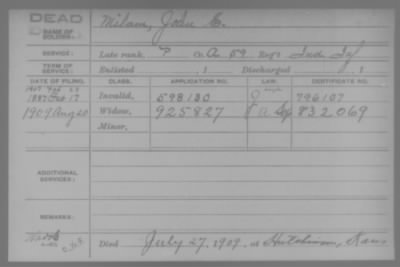 DEAD
NAME OF SOLDIER: Milam, John C.
SERVICE: Late rank, P Co. A, 59 Reg't Ind. Inf
TERM OF SERVICE: Enlisted , 1 Discharged , 1
DATE OF FILING. CLASS. APPLICATION NO. LAW. CERTIFICATE NO.
1887 Invalid, 598130 796107
1909 Aug 20 Widow, 925827 832069
Minor,
ADDITIONAL SERVICES:
REMARKS:
Died July 27, 1909, at Hutchinson, Kans